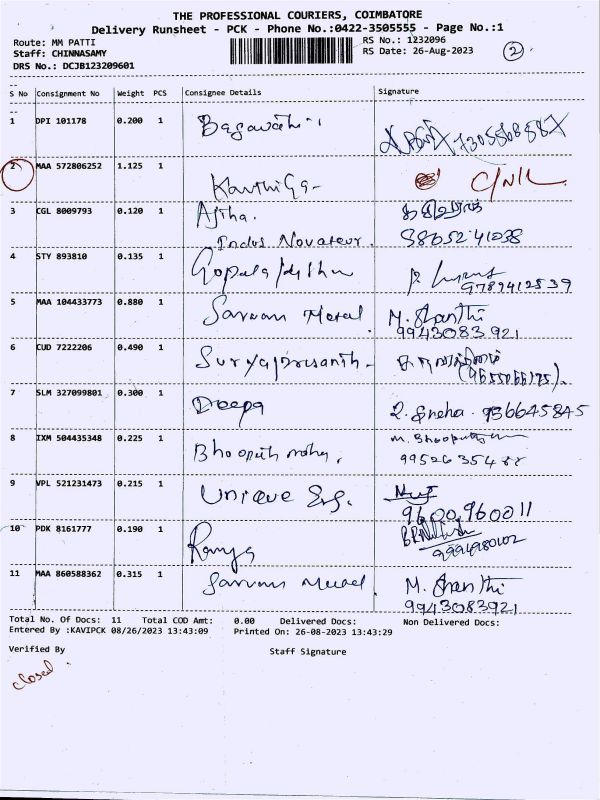 THE PROFESSIONAL COURIERS, COIMBATORE
Delivery Runsheet - PCK - Phone No.:0422-3505555 - Page No.:1
Route: MM PATTI RS No.: 1232096
Staff: CHINNASAMY RS Date: 26-Aug-2023 2
DRS No.: DCJB123209601
S No Consignment No Weight PCS Consignee Details Signature
1 DPI 101178 0.200 1 Bagavathi
2 MAA 572806252 1.125 1 Karthiga C/N/L
3 CGL 8009793 0.120 1 Ajtha.
Indus Novateur.
4 STY 893810 0.135 1
9789412539
5 MAA 104433773 0.880 1 Saravan Metal. M. Shanthi
9943083921
6 CUD 7222206 0.490 1 Suryaprasanth
7 SLM 327099801 0.300 1 Deepa 2. Sneha. 936645845
8 IXM 504435348 0.225 1
9 VPL 521231473 0.215 1 Unique Eng.
9600960011
10 PDK 8161777 0.190 1 Ramya
11 MAA 860588362 0.315 1 M. Shanthi
9943083921
Total No. Of Docs: 11 Total COD Amt: 0.00 Delivered Docs: Non Delivered Docs:
Entered By :KAVIPCK 08/26/2023 13:43:09 Printed On: 26-08-2023 13:43:29
Verified By Staff Signature
closed